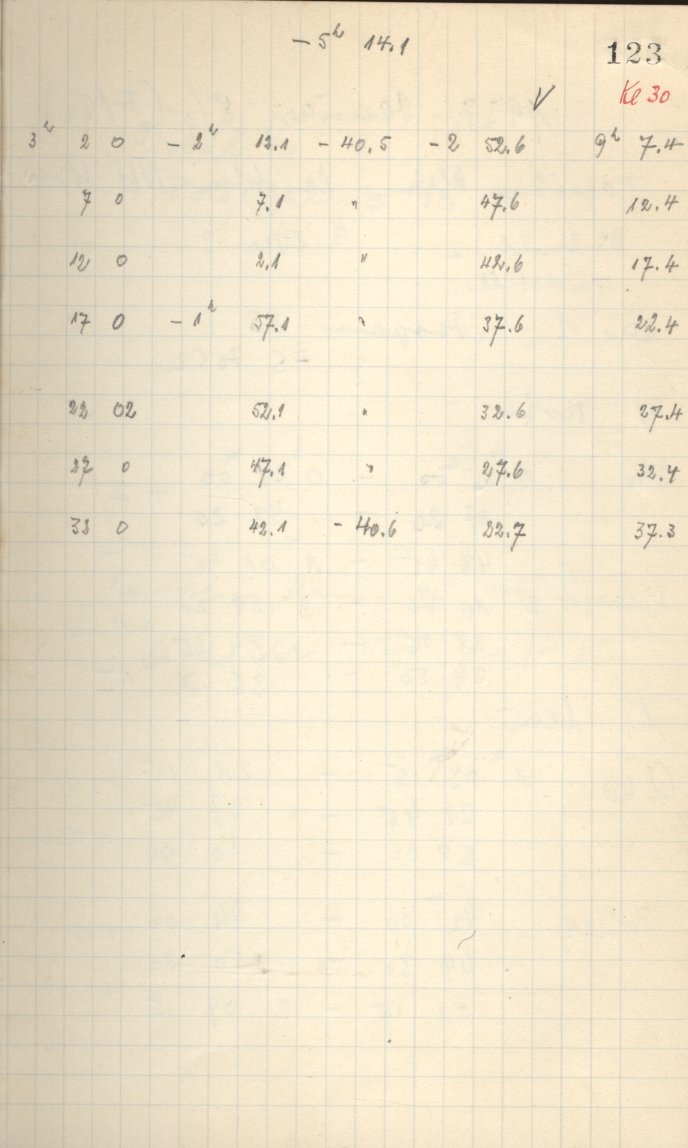 - 5ʰ 14.1
123
Ke 30
V
3ʰ 2 0 - 2ʰ 12.1 - 40.5 - 2 52.6 9ʰ 7.4
7 0 7.1 " 47.6 12.4
12 0 2.1 " 42.6 17.4
17 0 - 1ʰ 57.1 " 37.6 22.4
22 02 52.1 " 32.6 27.4
27 0 47.1 " 27.6 32.4
32 0 42.1 - 40.6 22.7 37.3